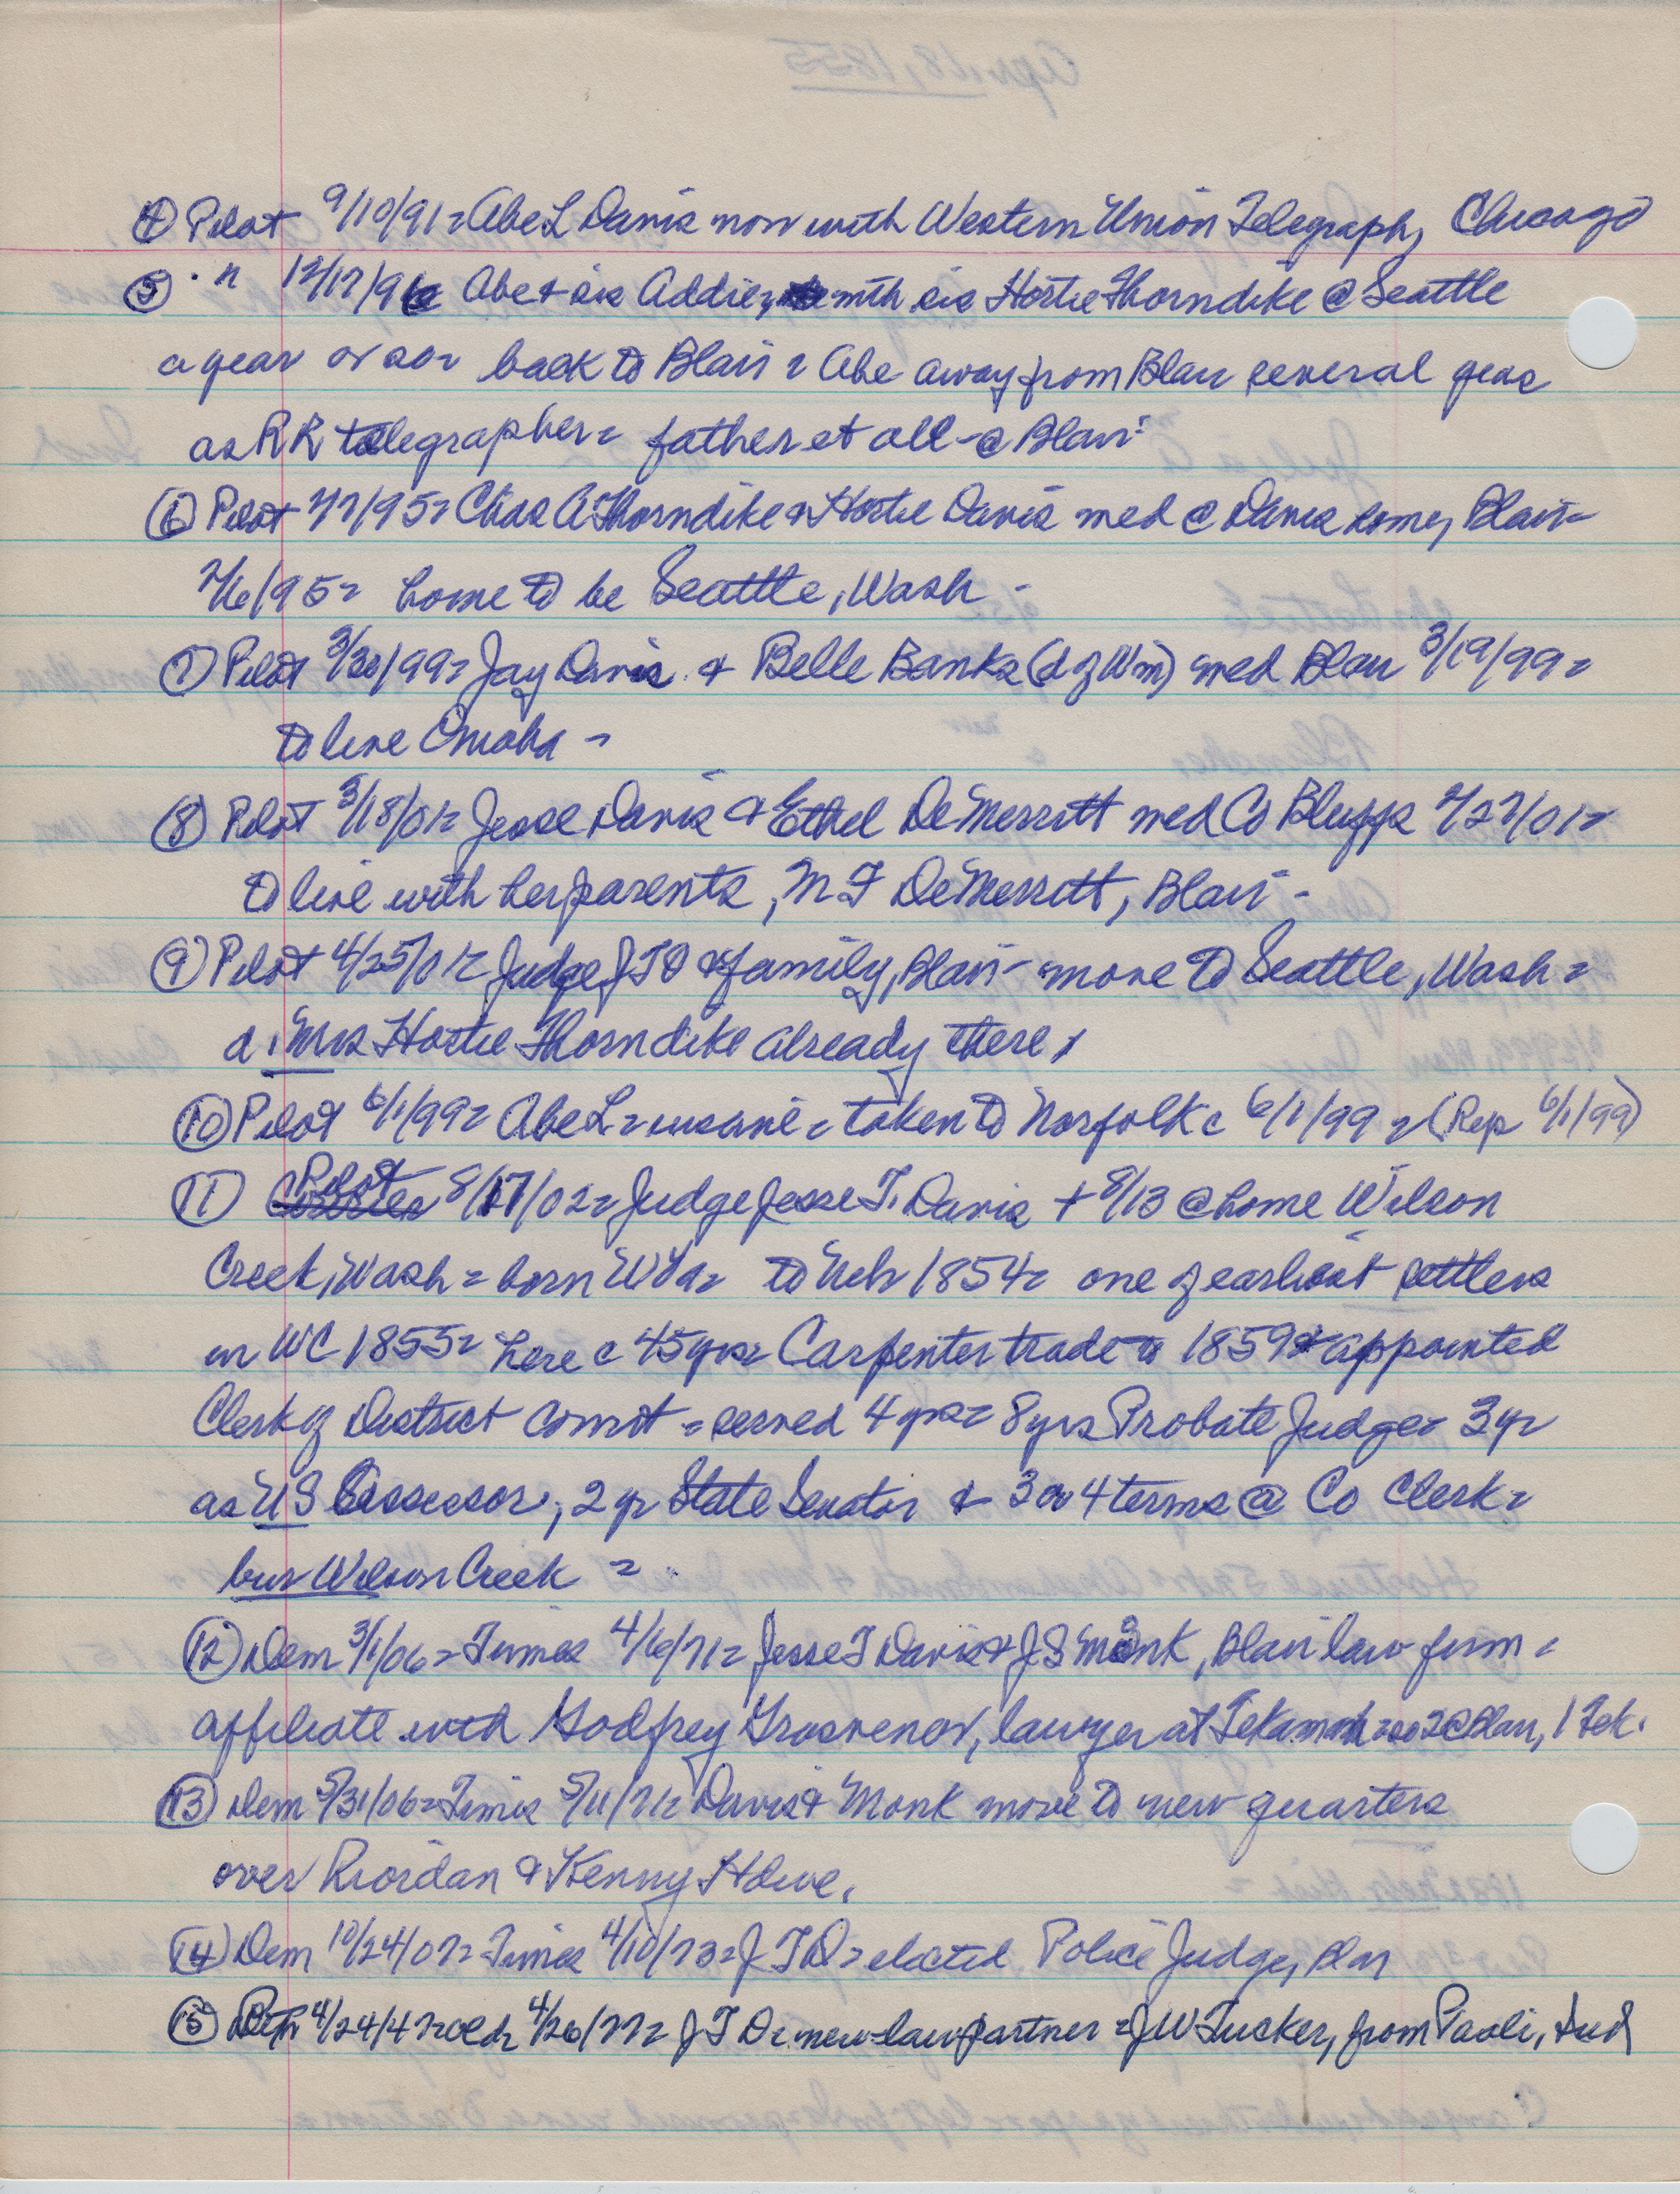 ④ Pilot 9/10/91 = Abe L Davis now with Western Union Telegraph, Chicago
⑤ · " 12/17/96 Abe & sis Addie, with sis Hortie Thorndike @ Seattle
a year or so = back to Blair = Abe away from Blair several years
as RR telegrapher = father et all - @ Blair
⑥ Pilot 2/7/95 = Chas A Thorndike & Hortie Davis med @ Davis home, Blair -
2/6/95 = home to be Seattle, Wash -
⑦ Pilot 3/30/99 = Jay Davis & Belle Banks (d of Wm) med Blair 3/19/99 =
to live Omaha -
⑧ Pilot 3/18/01 = Jesse Davis & Ethel DeMerritt med Co Bluffs 2/27/01 =
to live with her parents, M F DeMerritt, Blair -
⑨ Pilot 4/25/01 = Judge J T D & family, Blair - move to Seattle, Wash =
d, Mrs Hortie Thorndike already there,
⑩ Pilot 6/1/99 = Abe L = insane = taken to Norfolk c 6/1/99 = (Rep 6/1/99)
⑪ Pilot 8/17/02 = Judge Jesse T. Davis + 8/13 @ home Wilson
Creek, Wash = born W Va = to Neb 1854 = one of earliest settlers
in WC 1855 = here c 45 yrs = Carpenter trade to 1859 & appointed
Clerk of District Court = served 4 yrs = 8 yrs Probate Judge = 3 yr
as US Assessor, 2 yr State Senator & 3 or 4 terms @ Co Clerk =
bur Wilson Creek =
⑫ Dem 3/1/06 = Times 4/6/71 = Jesse T Davis & J S Monk, Blair law firm =
affiliate with Godfrey Grosvenor, lawyer at Tekamah = so 2 @ Blair, 1 Tek.
⑬ Dem 5/31/06 = Times 5/11/71 = Davis & Monk move to new quarters
over Riordan & Kenny Hdwe.
⑭ Dem 10/24/07 = Times 4/10/73 = J T D = elected Police Judge, Blair
⑮ 4/24/47 = old 4/26/77 = J T D = new law partner = J W Tucker, from Paoli, Ind